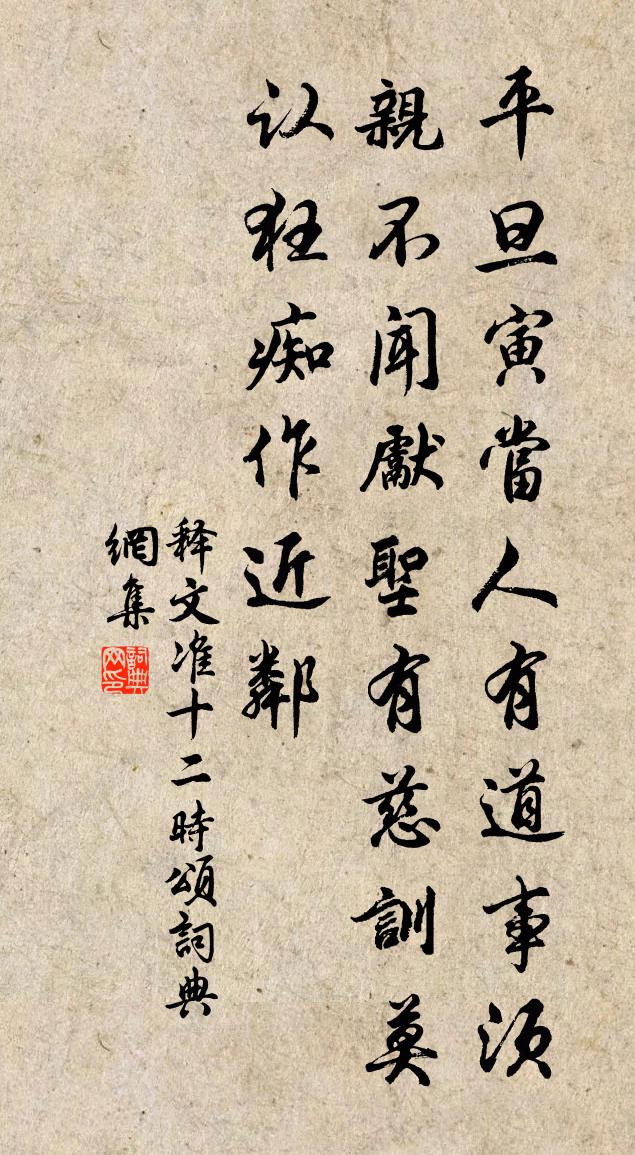 平旦寅當人有道事須
親不聞獻聖有慈訓莫
认狂痴作近鄰
释文准十二時頌詞典
網集
詞典網印